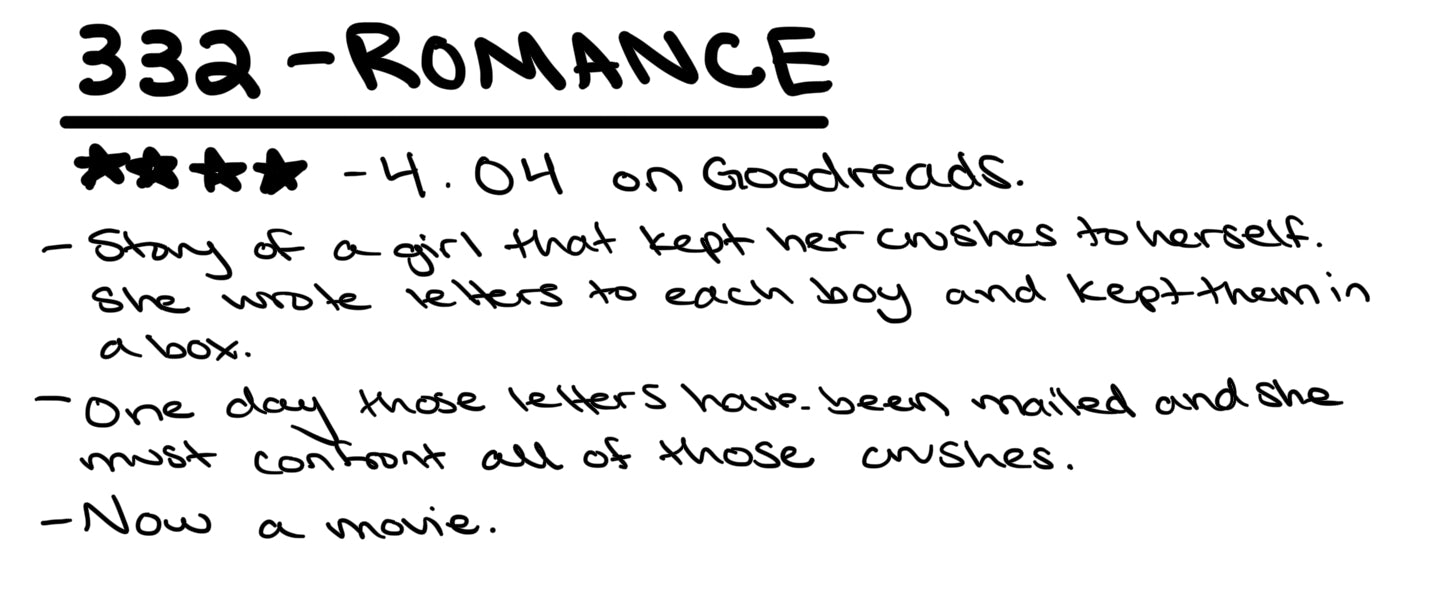 332 - ROMANCE
★★★★ - 4.04 on Goodreads.
- Story of a girl that kept her crushes to herself.
She wrote letters to each boy and kept them in
a box.
- One day those letters have been mailed and she
must confront all of those crushes.
- Now a movie.